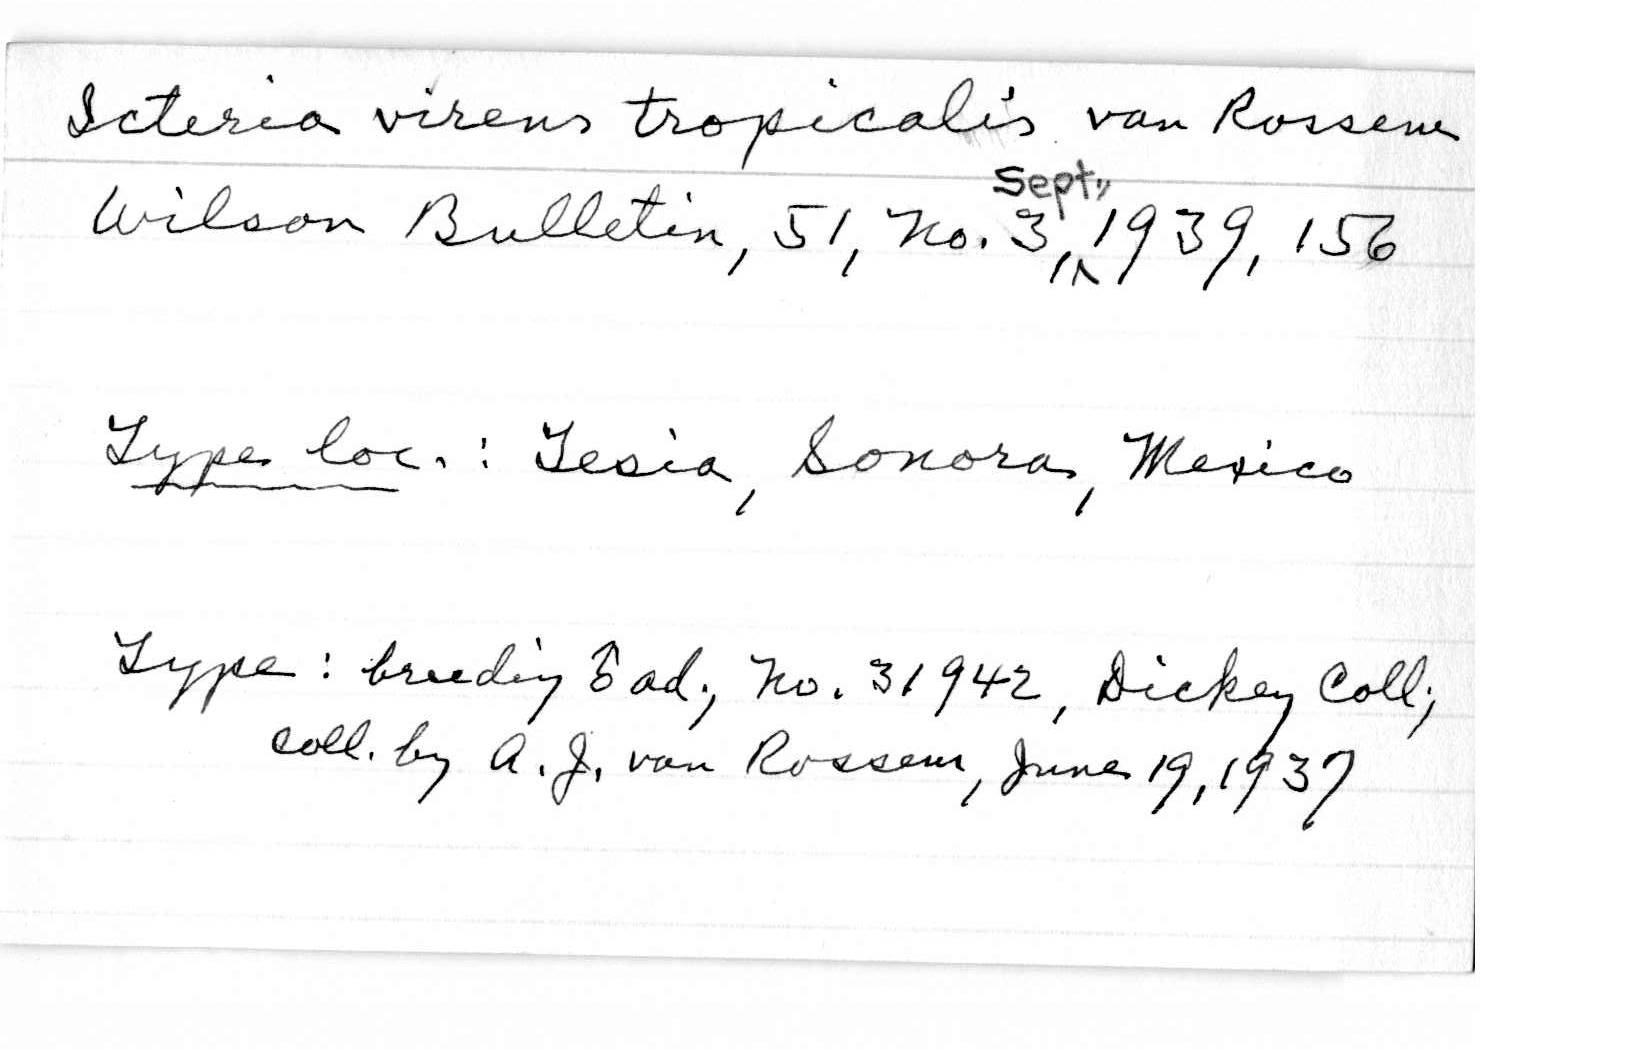 Icteria virens tropicalis van Rossem
Wilson Bulletin, 51, No. 3, Sept., 1939, 156
Type loc.: Tesia, Sonora, Mexico
Type: breeding ♂ ad., No. 31942, Dickey Coll;
coll. by A. J. van Rossem, June 19, 1937